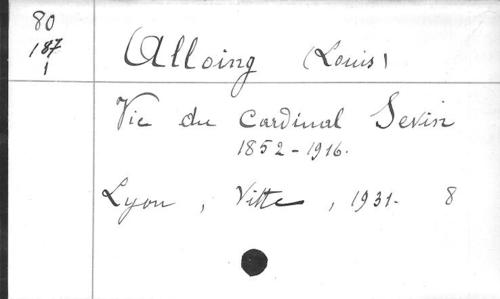 80
187
1
Alloing (Louis)
Vie du Cardinal Sevin
1852-1916.
Lyon, Vitte, 1931- 8